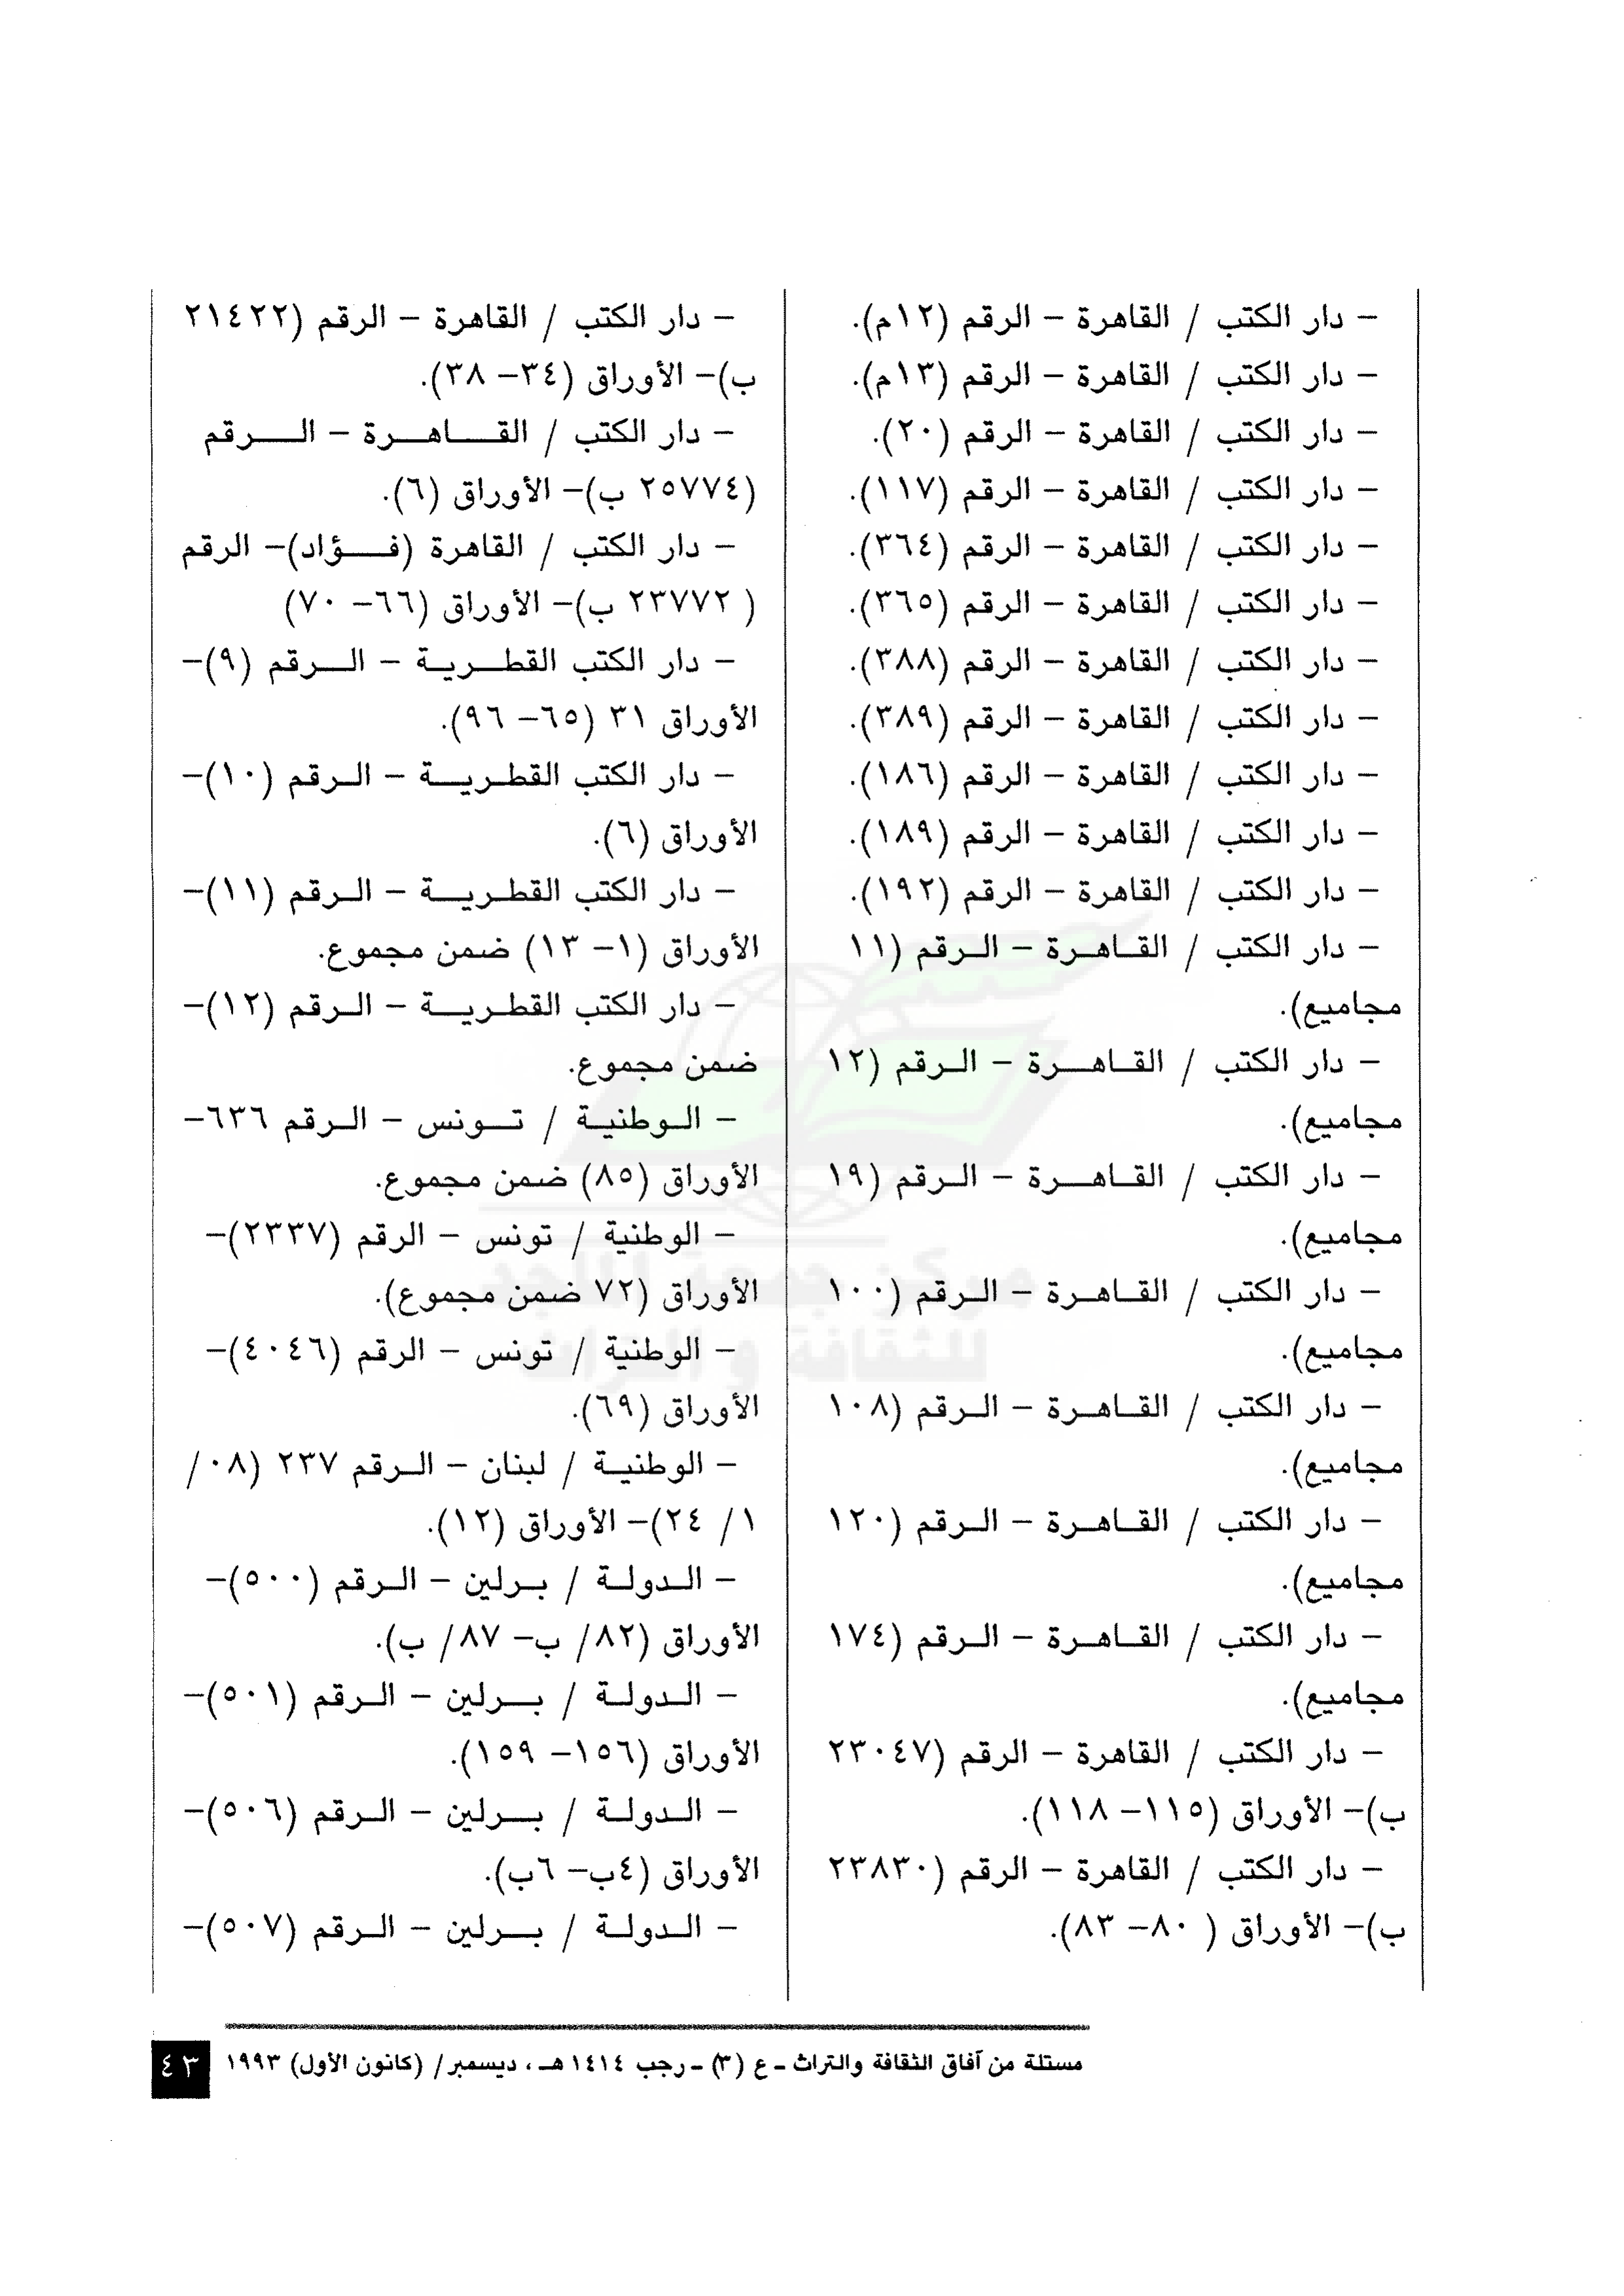 – دار الكتب / القاهرة – الرقم (١٢م).
– دار الكتب / القاهرة – الرقم (١٣م).
– دار الكتب / القاهرة – الرقم (٢٠).
– دار الكتب / القاهرة – الرقم (١١٧).
– دار الكتب / القاهرة – الرقم (٣٦٤).
– دار الكتب / القاهرة – الرقم (٣٦٥).
– دار الكتب / القاهرة – الرقم (٣٨٨).
– دار الكتب / القاهرة – الرقم (٣٨٩).
– دار الكتب / القاهرة – الرقم (١٨٦).
– دار الكتب / القاهرة – الرقم (١٨٩).
– دار الكتب / القاهرة – الرقم (١٩٢).
– دار الكتب / القاهرة – الرقم (١١
مجاميع).
– دار الكتب / القاهرة – الرقم (١٢
مجاميع).
– دار الكتب / القاهرة – الرقم (١٩
مجاميع).
– دار الكتب / القاهرة – الرقم (١٠٠
مجاميع).
– دار الكتب / القاهرة – الرقم (١٠٨
مجاميع).
– دار الكتب / القاهرة – الرقم (١٢٠
مجاميع).
– دار الكتب / القاهرة – الرقم (١٧٤
مجاميع).
– دار الكتب / القاهرة – الرقم (٢٣٠٤٧
ب)– الأوراق (١١٥– ١١٨).
– دار الكتب / القاهرة – الرقم (٢٣٨٣٠
ب)– الأوراق ( ٨٠– ٨٣).
– دار الكتب / القاهرة – الرقم (٢١٤٢٢
ب)– الأوراق (٣٤– ٣٨).
– دار الكتب / القاهرة – الرقم
(٢٥٧٧٤ ب)– الأوراق (٦).
– دار الكتب / القاهرة (فؤاد)– الرقم
( ٢٣٧٧٢ ب)– الأوراق (٦٦– ٧٠)
– دار الكتب القطرية – الرقم (٩)–
الأوراق ٣١ (٦٥– ٩٦).
– دار الكتب القطرية – الرقم (١٠)–
الأوراق (٦).
– دار الكتب القطرية – الرقم (١١)–
الأوراق (١– ١٣) ضمن مجموع.
– دار الكتب القطرية – الرقم (١٢)–
ضمن مجموع.
– الوطنية / تونس – الرقم ٦٣٦–
الأوراق (٨٥) ضمن مجموع.
– الوطنية / تونس – الرقم (٢٣٣٧)–
الأوراق (٧٢ ضمن مجموع).
– الوطنية / تونس – الرقم (٤٠٤٦)–
الأوراق (٦٩).
– الوطنية / لبنان – الرقم ٢٣٧ (٠٨/
١/ ٢٤)– الأوراق (١٢).
– الدولة / برلين – الرقم (٥٠٠)–
الأوراق (٨٢/ ب– ٨٧/ ب).
– الدولة / برلين – الرقم (٥٠١)–
الأوراق (١٥٦– ١٥٩).
– الدولة / برلين – الرقم (٥٠٦)–
الأوراق (٤ب– ٦ب).
– الدولة / برلين – الرقم (٥٠٧)–
مركز جمعة الماجد
للثقافة و التراث
مستلة من آفاق الثقافة والتراث ـ ع (٣) ـ رجب ١٤١٤ هـ ، ديسمبر/ (كانون الأول) ١٩٩٣
٤٣